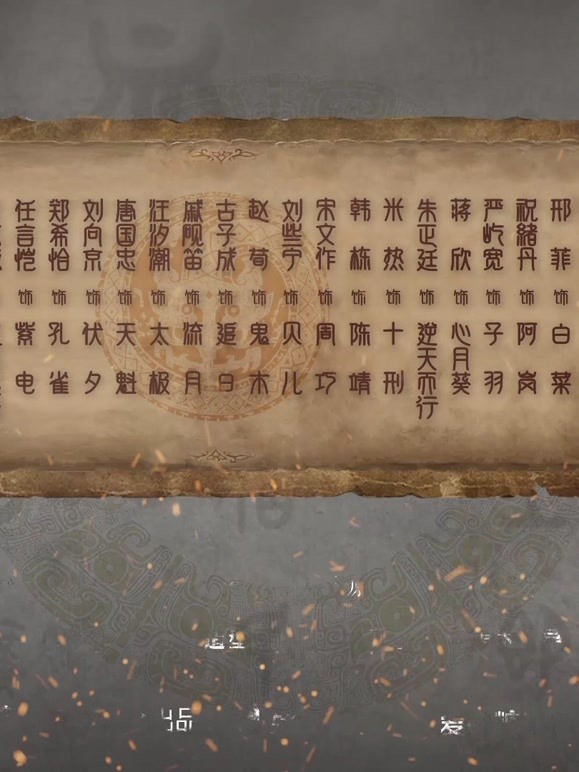 邢菲 饰 白菜
祝緒丹 饰 阿岗
严屹宽 饰 子羽
蒋欣 饰 心月葵
朱正廷 饰 逆天而行
米热 饰 十刑
韩栋 饰 陈靖
宋文作 饰 周巧
刘些宁 饰 贝儿
赵荀 饰 鬼木
古子成 饰 追日
戚砚笛 饰 流月
汪汐潮 饰 太极
唐国忠 饰 天魁
刘向京 饰 伏夕
郑希怡 饰 孔雀
任言恺 饰 紫电